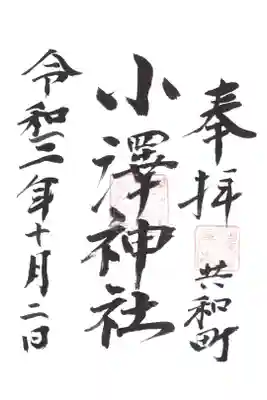 奉拝 共和町
小澤神社
令和三年十月二日